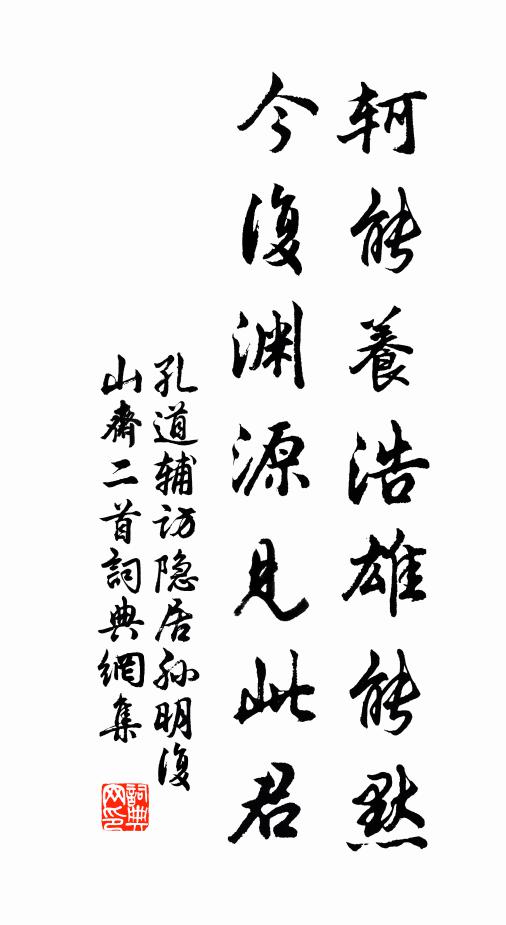 轲能養浩雄能默
今復渊源見此君
孔道辅访隐居孙明復
山齋二首詞典網集
詞典
网印